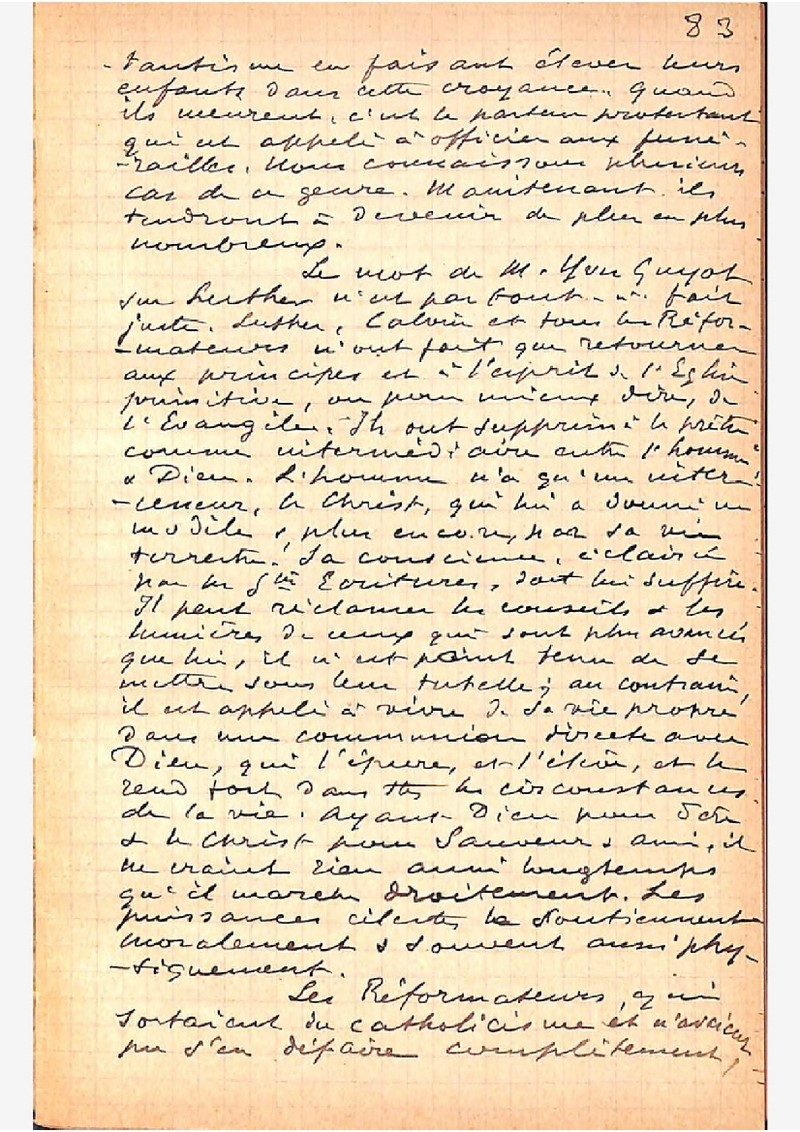 83
-tantisme en faisant élever leurs
enfants dans cette croyance. Quand
ils meurent, c'est le pasteur protestant
qui est appelé à officier aux funé-
-railles. Nous connaissons plusieurs
cas de ce genre. Maintenant ils
tendront à devenir de plus en plus
nombreux.
Le mot de M. Yves Guyot
sur Luther n'est pas tout-à-fait
juste. Luther, Calvin et tous les Réfor-
-mateurs n'ont fait que retourner
aux principes et à l'esprit de l'Eglise
primitive, ou pour mieux dire, de
l'Evangile. Ils ont supprimé le prêtre
comme intermédiaire entre l'homme
& Dieu. L'homme n'a qu'un inter-
-cesseur, le Christ, qui lui a donné un
modèle &, plus encore, par sa vie
terrestre. Sa conscience, éclairée
par les Stes Ecritures, doit lui suffire.
Il peut réclamer les conseils & les
lumières de ceux qui sont plus avancés
que lui, il n'est point tenu de se
mettre sous leur tutelle; au contraire,
il est appelé à vivre de sa vie propre
dans une communion directe avec
Dieu, qui l'épure, et l'élève, et le
rend fort dans ttes les circonstances
de la vie. Ayant Dieu pour Père
& le Christ pour Sauveur & ami, il
ne craint rien aussi longtemps
qu'il marche droitement. Les
puissances célestes le soutiennent
moralement & souvent aussi phy-
-siquement.
Les Réformateurs, qui
sortaient du catholicisme et n'avaient
pu s'en défaire complètement,